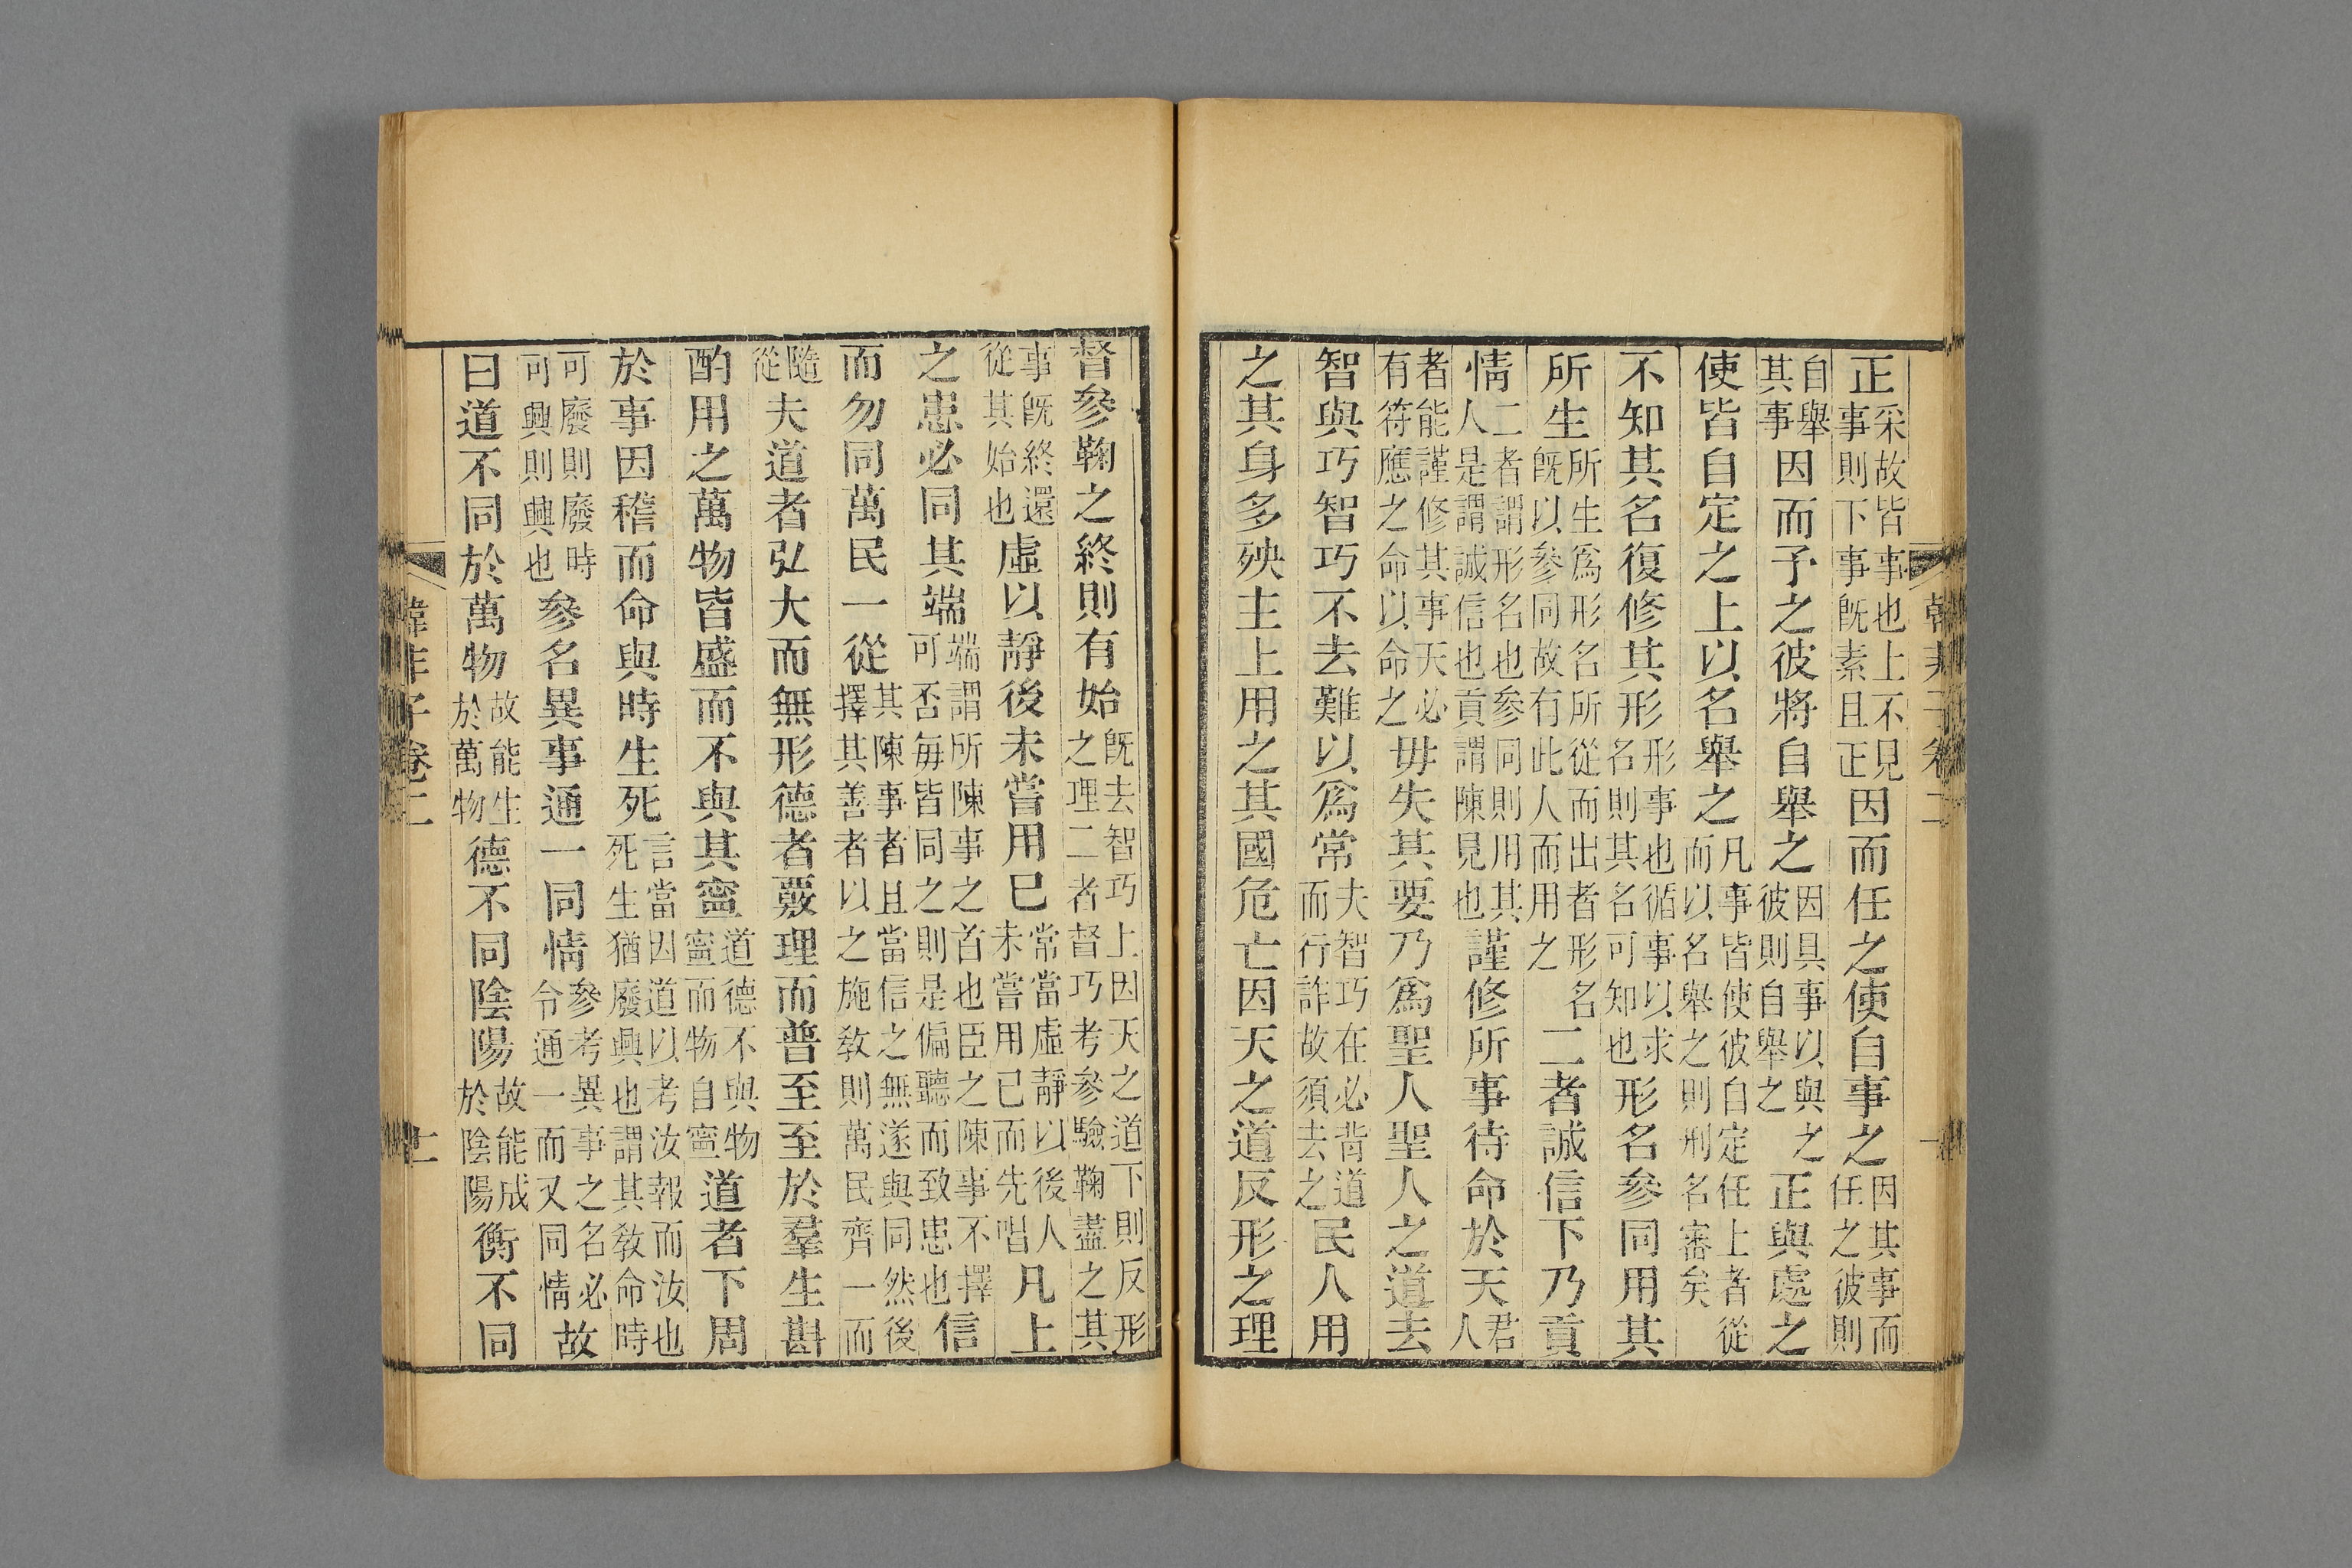 正采故皆事也上不見事則下事既素且正因而任之使自事之因其事而任之彼則
自舉其事因而予之彼將自舉之因具事以與之彼則自舉之正與處之
使皆自定之上以名舉之凡事皆使彼自定任上者從而以名舉之則刑名審矣
不知其名復修其形形事也循事以求名則其名可知也形名參同用其
所生所生爲形名所從而出者形名既以參同故有此人而用之二者誠信下乃貢
情二者謂形名也參同則用其人是謂誠信也貢謂陳見也謹修所事待命於天君人
者能謹修其事天必有符應之命以命之毋失其要乃爲聖人聖人之道去
智與巧智巧不去難以爲常夫智巧在必背道而行詐故須去之民人用
之其身多殃主上用之其國危亡因天之道反形之理
督參鞠之終則有始既去智巧上因天之道下則反形之理二者督巧考參驗鞠盡之其
事既終還從其始也虛以靜後未嘗用已常當虛靜以後人未嘗用已而先唱凡上
之患必同其端端謂所陳事之首也臣之陳事不擇可否每皆同之則是偏聽而致患也信
而勿同萬民一從其陳事者且當信之無遂與同然後擇其善者以之施教則萬民齊一而
隨從夫道者弘大而無形德者覈理而普至至於羣生斟
酌用之萬物皆盛而不與其寍道德不與物寍而物自寍道者下周
於事因稽而命與時生死言當因道以考汝報而汝也死生猶廢興也謂其教命時
可廢則廢時可興則興也參名異事通一同情參考異事之名必令通一而又同情故
曰道不同於萬物故能生於萬物德不同陰陽故能成於陰陽衡不同
韓非子卷二
十一